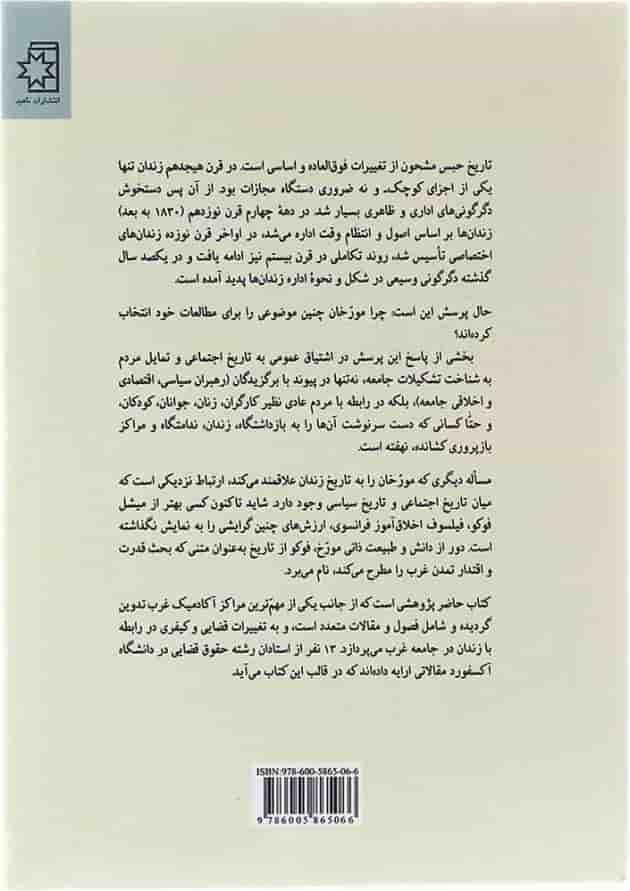 انتشارات ناهید
تاریخ حبس مشحون از تغییرات فوق‌العاده و اساسی است. در قرن هیجدهم زندان تنها
یکی از اجزای کوچک، و نه ضروری دستگاه مجازات بود. از آن پس دستخوش
دگرگونی‌های اداری و ظاهری بسیار شد. در دههٔ چهارم قرن نوزدهم (۱۸۳۰ به بعد)
زندان‌ها بر اساس اصول و انتظام وقت اداره می‌شد، در اواخر قرن نوزده زندان‌های
اختصاصی تأسیس شد، روند تکاملی در قرن بیستم نیز ادامه یافت و در یکصد سال
گذشته دگرگونی وسیعی در شکل و نحوهٔ اداره زندان‌ها پدید آمده است.
حال پرسش این است، چرا مورّخان چنین موضوعی را برای مطالعات خود انتخاب
کرده‌اند؟
بخشی از پاسخ این پرسش در اشتیاق عمومی به تاریخ اجتماعی و تمایل مردم
به شناخت تشکیلات جامعه، نه‌تنها در پیوند با برگزیدگان (رهبران سیاسی، اقتصادی
و اخلاقی جامعه)، بلکه در رابطه با مردم عادی نظیر کارگران، زنان، جوانان، کودکان،
و حتّا کسانی که دست سرنوشت آن‌ها را به بازداشتگاه، زندان، ندامتگاه و مراکز
بازپروری کشانده، نهفته است.
مسأله دیگری که مورّخان را به تاریخ زندان علاقمند می‌کند، ارتباط نزدیکی است که
میان تاریخ اجتماعی و تاریخ سیاسی وجود دارد. شاید تاکنون کسی بهتر از میشل
فوکو، فیلسوف اخلاق‌آموز فرانسوی، ارزش‌های چنین گرایشی را به نمایش نگذاشته
است. دور از دانش و طبیعت ذاتی مورّخ، فوکو از تاریخ به‌عنوان متنی که بحث قدرت
و اقتدار تمدن غرب را مطرح می‌کند، نام می‌برد.
کتاب حاضر پژوهشی است که از جانب یکی از مهم‌ترین مراکز آکادمیک غرب تدوین
گردیده و شامل فصول و مقالات متعدد است، و به تغییرات قضایی و کیفری در رابطه
با زندان در جامعه غرب می‌پردازد. ۱۳ نفر از استادان رشته حقوق قضایی در دانشگاه
آکسفورد مقالاتی ارایه داده‌اند که در قالب این کتاب می‌آید.
ISBN:978-600-5865-06-6
9 786005 865066